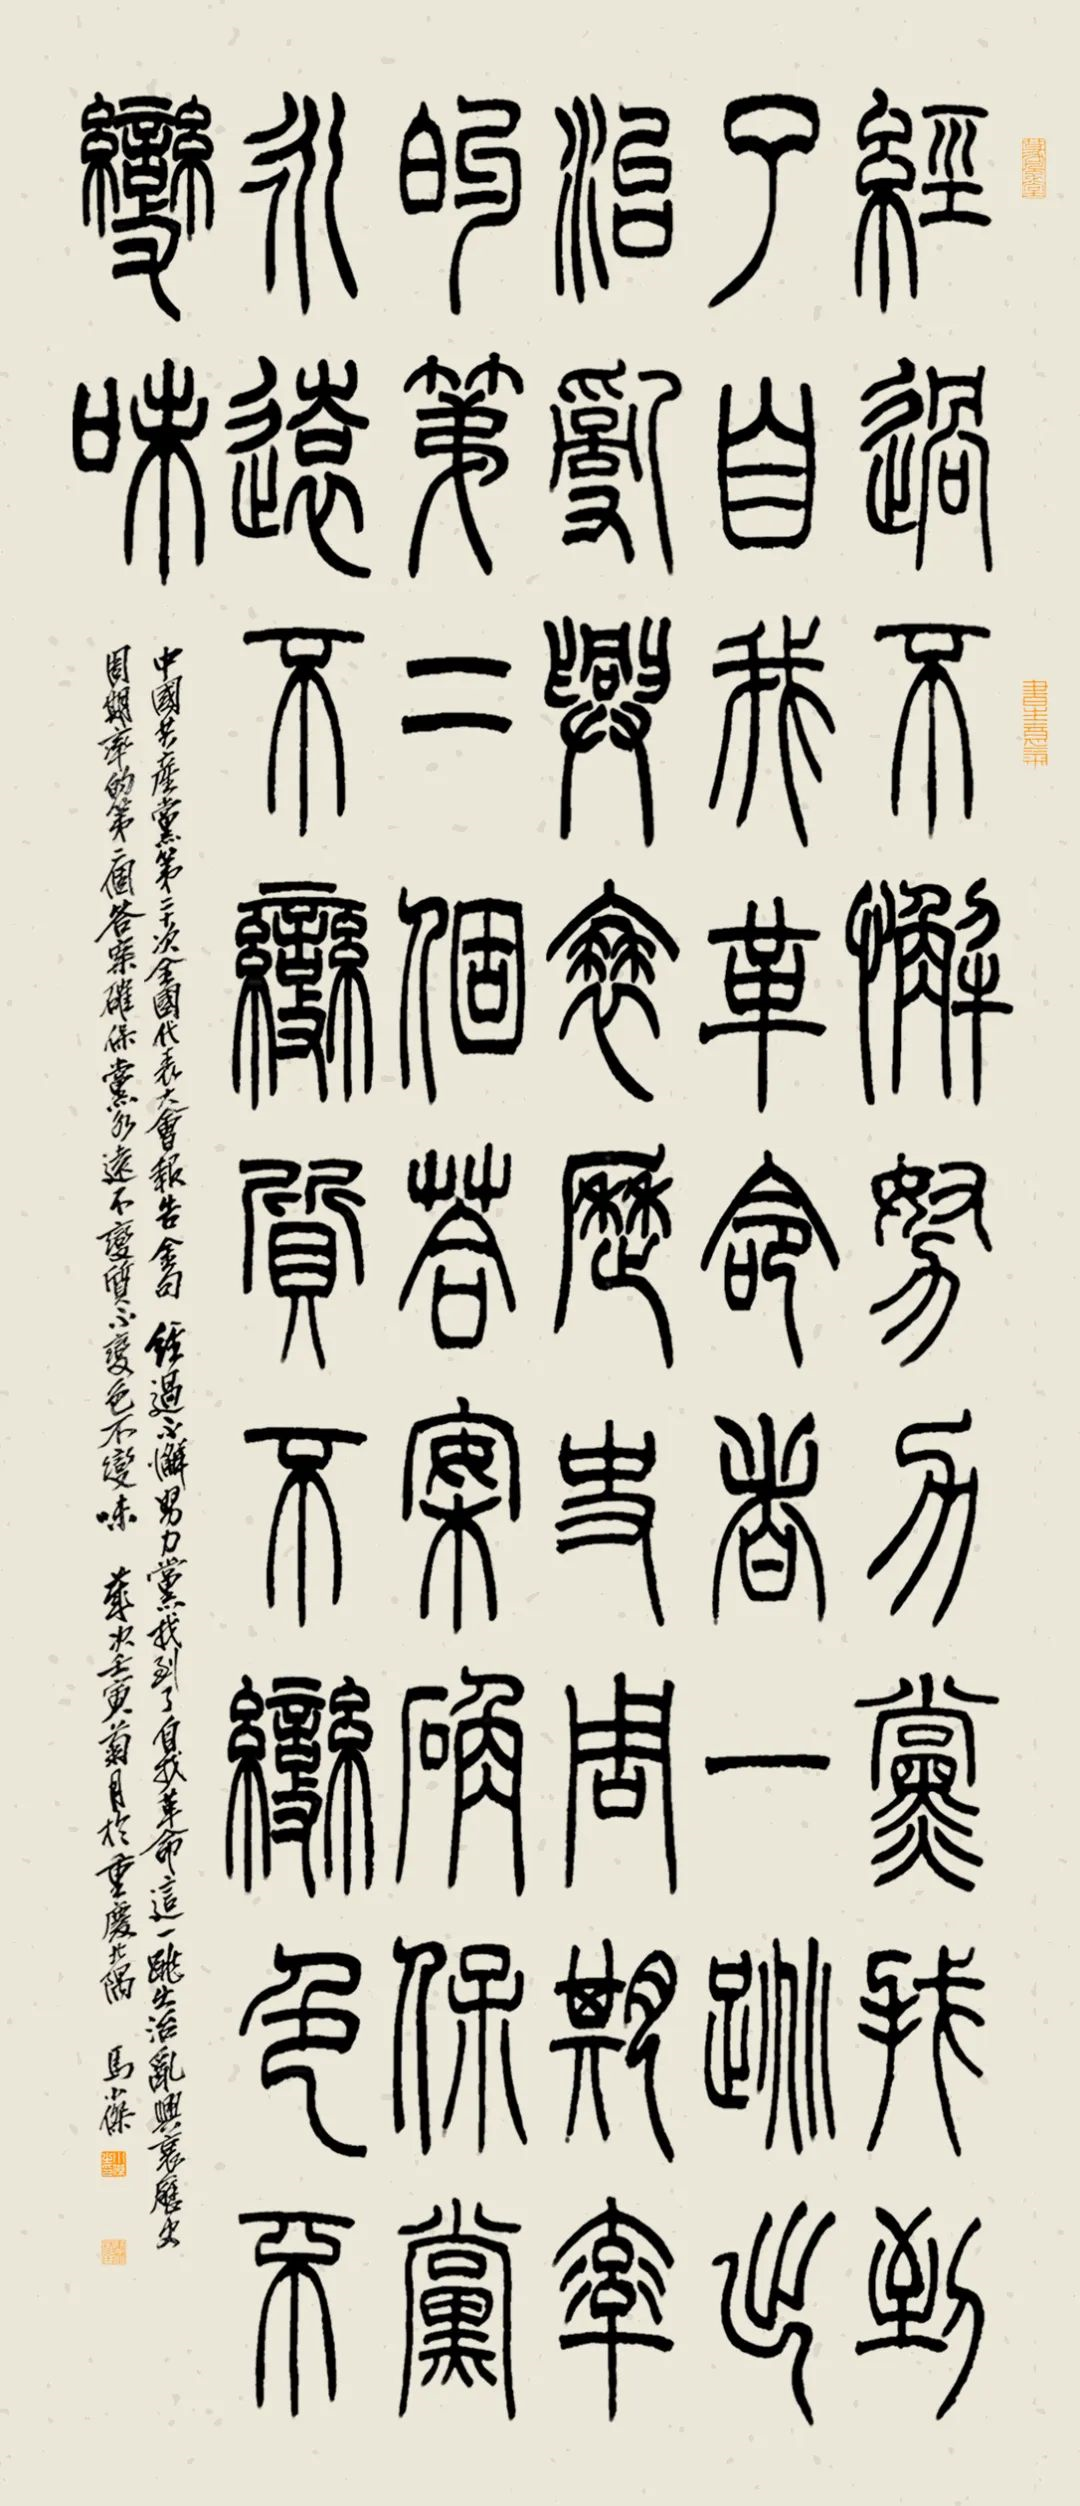 經過不懈努力黨找到
了自我革命者一跳出
治亂興衰歷史周期率
的第二個荅案確保黨
永遠不變質不變色不
變味
中國共產黨第二十次全國代表大會報告金句 經過不懈努力黨找到了自我革命這一跳出治亂興衰歷史
周期率的第二個答案確保黨永遠不變質不變色不變味 歲次壬寅菊月於重慶北隅 馬小傑